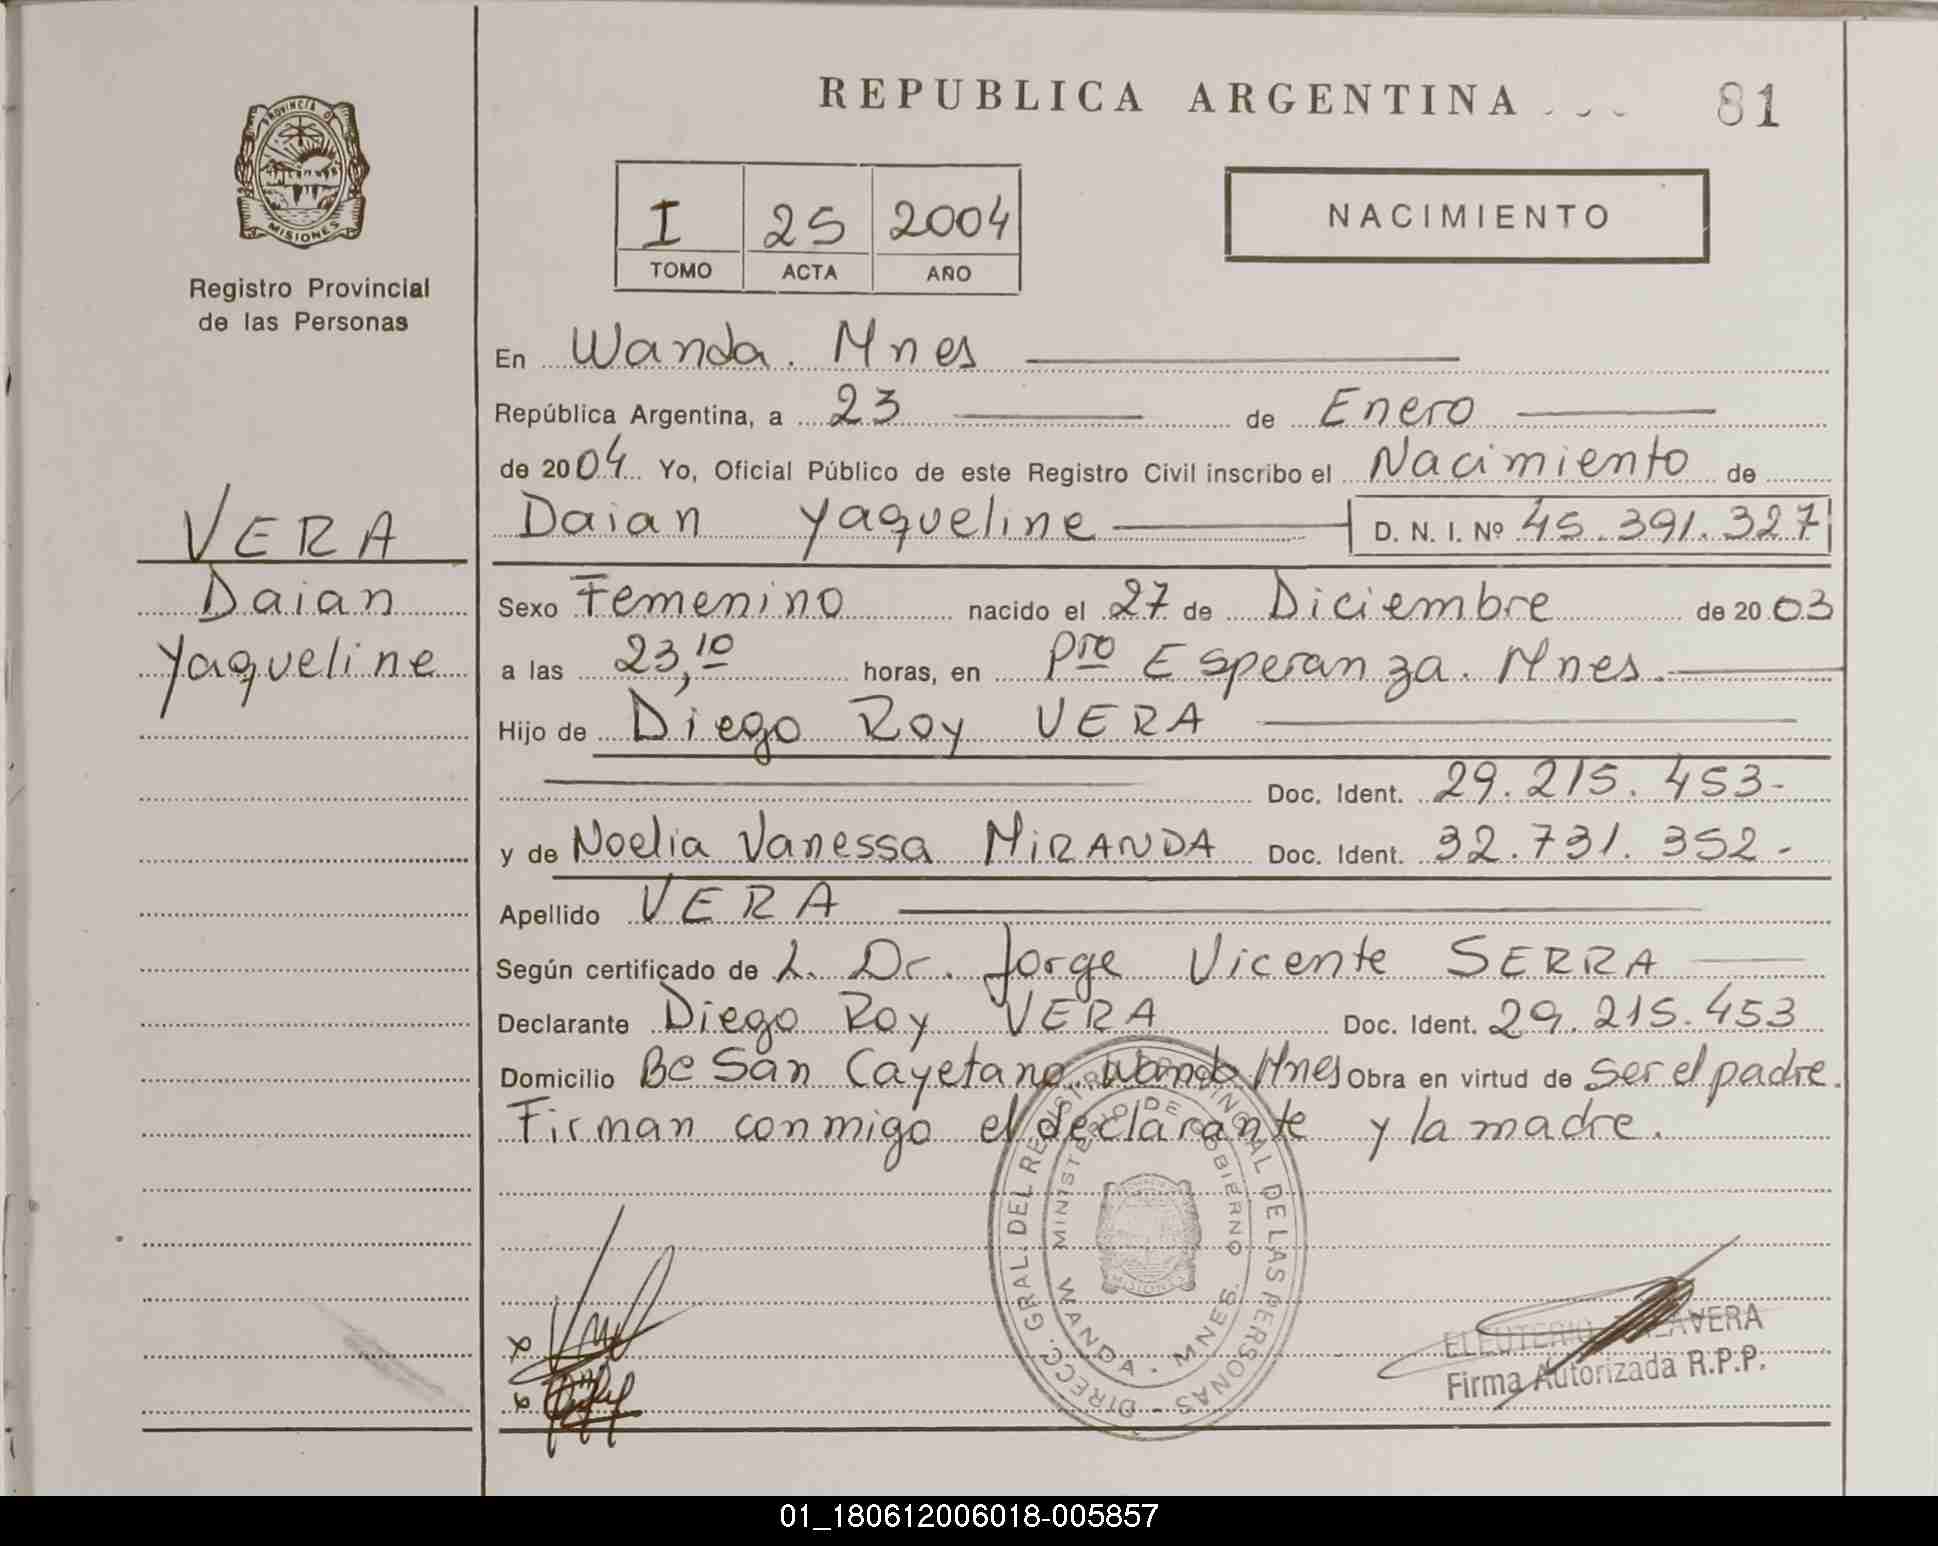 REPUBLICA ARGENTINA 81
PROVINCIA DE
MISIONES
Registro Provincial
de las Personas
I 25 2004
TOMO ACTA AÑO
NACIMIENTO
En Wanda. Mnes
República Argentina, a 23 de Enero
de 2004 Yo, Oficial Público de este Registro Civil inscribo el Nacimiento de
Daian Yaqueline D. N. I. Nº 45.391.327
VERA
Daian
Yaqueline
Sexo Femenino nacido el 27 de Diciembre de 2003
a las 23,10 horas, en Pto Esperanza. Mnes.
Hijo de Diego Roy VERA
Doc. Ident. 29.215.453-
y de Noelia Vanessa MIRANDA Doc. Ident. 32.731.352-
Apellido VERA
Según certificado de L. Dr. Jorge Vicente SERRA
Declarante Diego Roy VERA Doc. Ident. 29.215.453
Domicilio Bº San Cayetano Wanda Mnes Obra en virtud de ser el padre.
Firman conmigo el declarante y la madre.
DIRECC. GRAL. DEL REGISTRO PROVINCIAL DE LAS PERSONAS -
MINISTERIO DE GOBIERNO
WANDA - MNES.
ELEUTERIO
Firma Autorizada R.P.P.
01_180612006018-005857